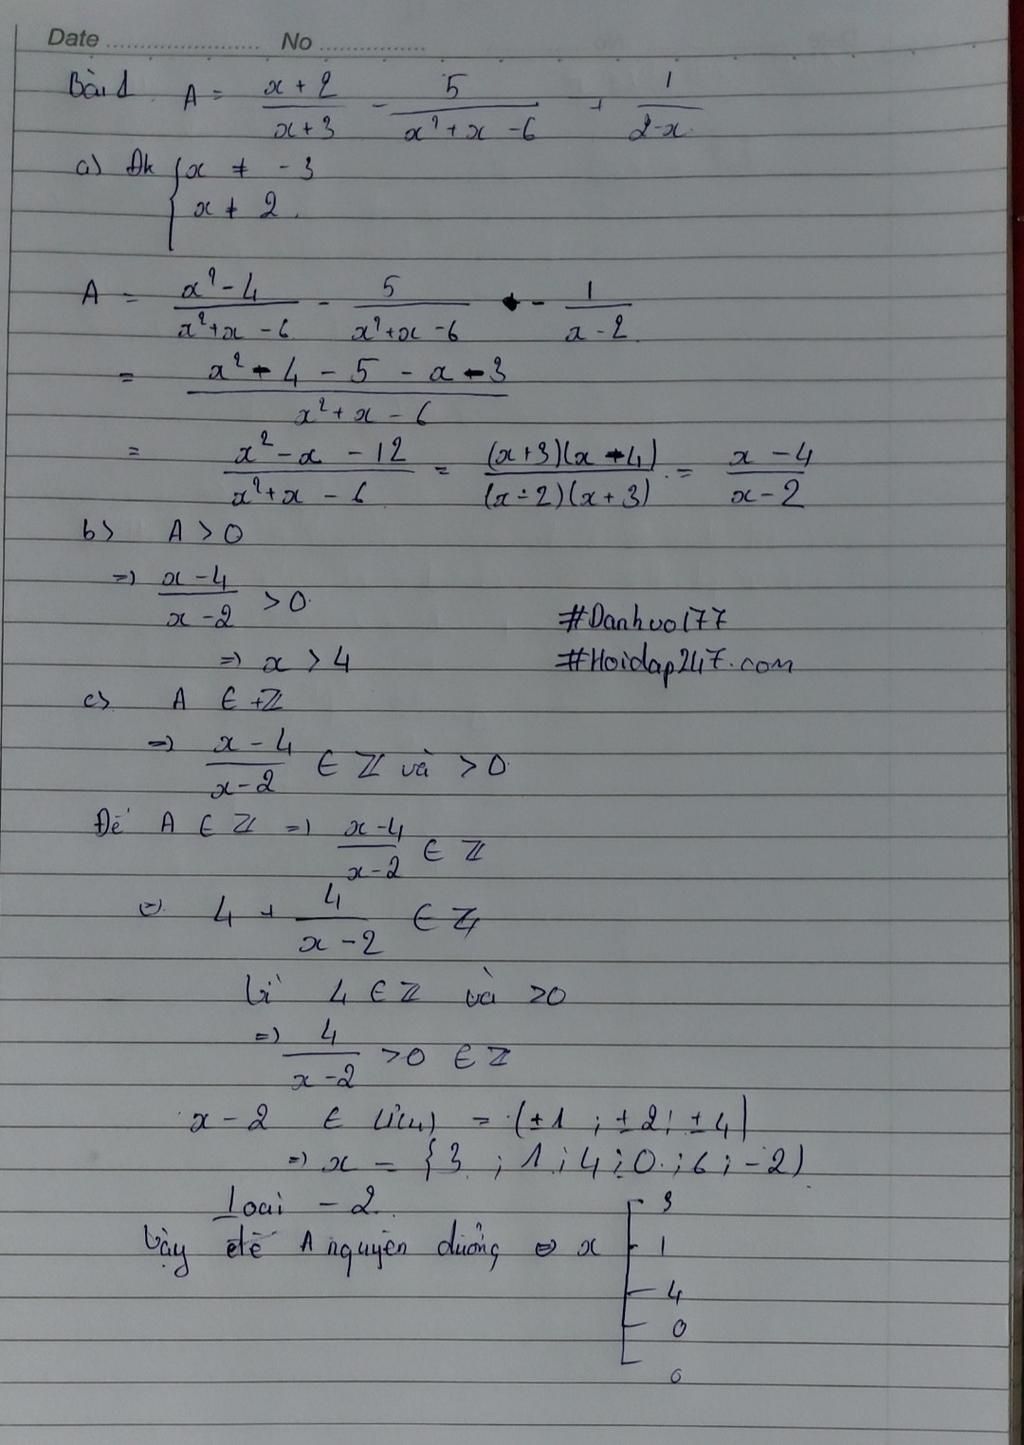 Date ........................ No ................
Bài 1 A = \frac{x+2}{x+3} - \frac{5}{x²+x-6} + \frac{1}{2-x}
a) Đk { x ≠ -3
x ≠ 2.
A = \frac{x²-4}{x²+x-6} - \frac{5}{x²+x-6} - \frac{1}{x-2}
= \frac{x²-4-5-x-3}{x²+x-6}
= \frac{x²-x-12}{x²+x-6} = \frac{(x+3)(x-4)}{(x-2)(x+3)} = \frac{x-4}{x-2}
b) A > 0
=) \frac{x-4}{x-2} > 0.
#Danhvo177
=) x > 4
#Hoidap247.com
c) A ∈ +Z
=) \frac{x-4}{x-2} ∈ Z và > 0
Để A ∈ Z =) \frac{x-4}{x-2} ∈ Z
=) 4 + \frac{4}{x-2} ∈ Z
Vì 4 ∈ Z và >0
=) \frac{4}{x-2} >0 ∈ Z
x-2 ∈ Ư(4) = (±1; ±2; ±4)
=) x = {3; 1; 4; 0; 6; -2)
Loại -2.
Vậy để A nguyên dương <=> x [ 3
1
4
0
6